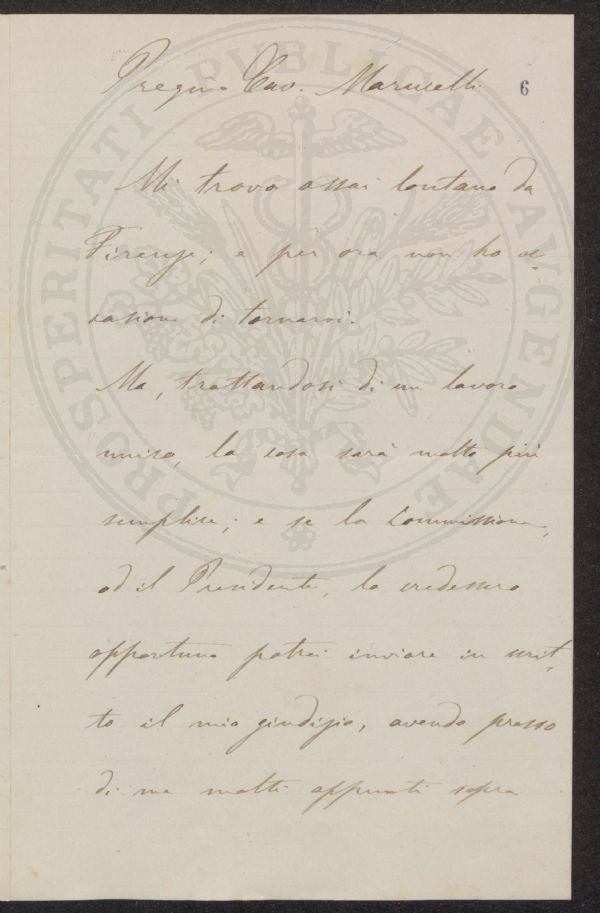 Pregmo Cav. Marucelli
6
Mi trovo assai lontano da
Firenze; e per ora non ho oc-
casione di tornarvi.
Ma, trattandosi di un lavoro
unico, la cosa sarà molto più
semplice; e se la Commissione,
od il Presidente, lo credessero
opportuno potrei inviare in scrit-
to il mio giudizio, avendo presso
di me molti appunti sopra
PROSPERITATI PVBLICAE AVGENDAE